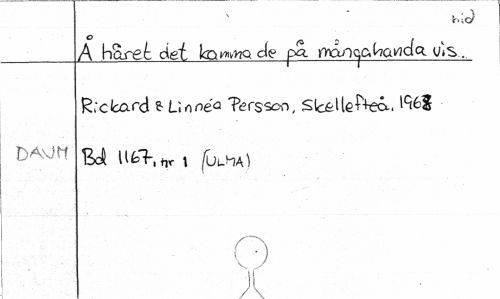 nid
Å håret det kamma de på mångahanda vis..
Rickard & Linnéa Persson, Skellefteå, 1968
DAUM Bd 1167, nr 1 (ULMA)